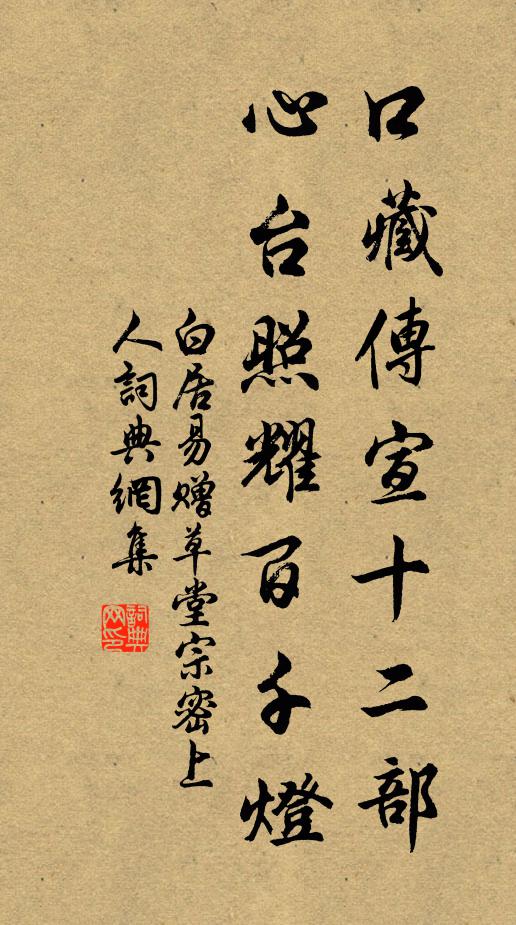 口藏傳宣十二部
心台照耀百千燈
白居易贈草堂宗密上
人詞典網集
詞典網印